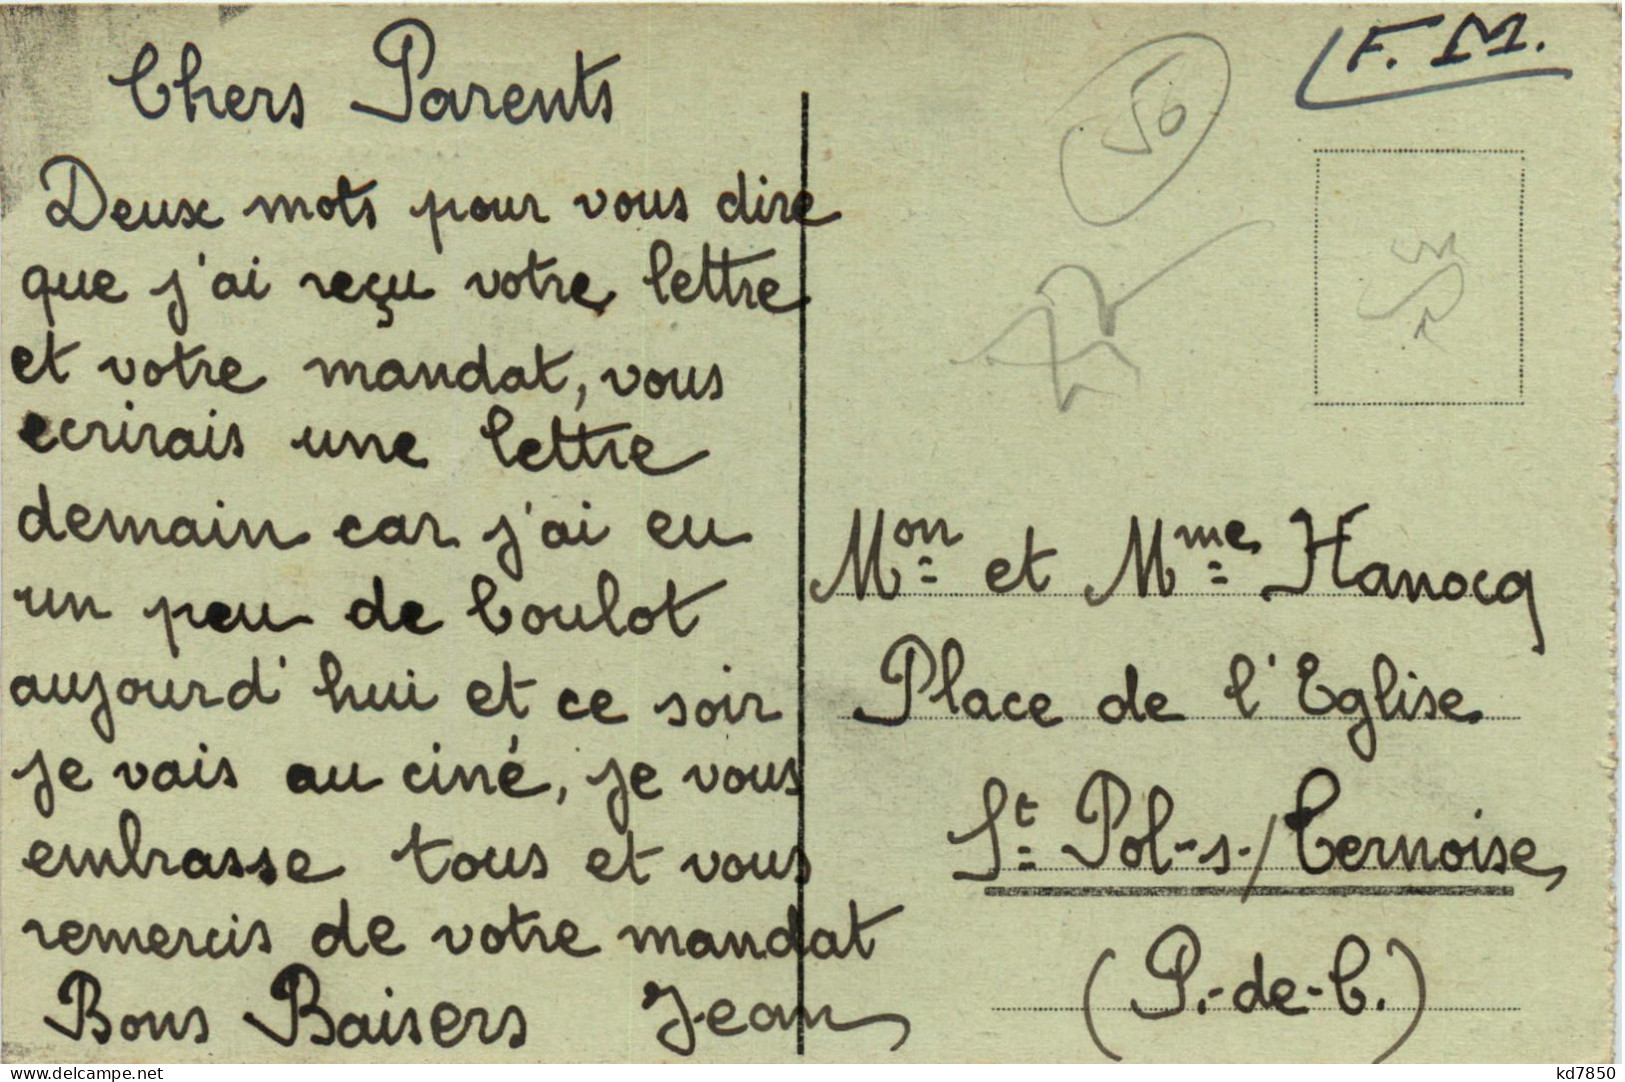 Chers Parents
Deux mots pour vous dire
que j'ai reçu votre lettre
et votre mandat, vous
ecrirais une lettre
demain car j'ai eu
un peu de boulot
aujourd'hui et ce soir
je vais au ciné, je vous
embrasse tous et vous
remercis de votre mandat
Bons Baisers Jean
F.M.
50
Mon et Mme Hanocq
Place de l'Eglise
St Pol-s-/Ternoise
(P.-de-C.)
www.delcampe.net
kd7850